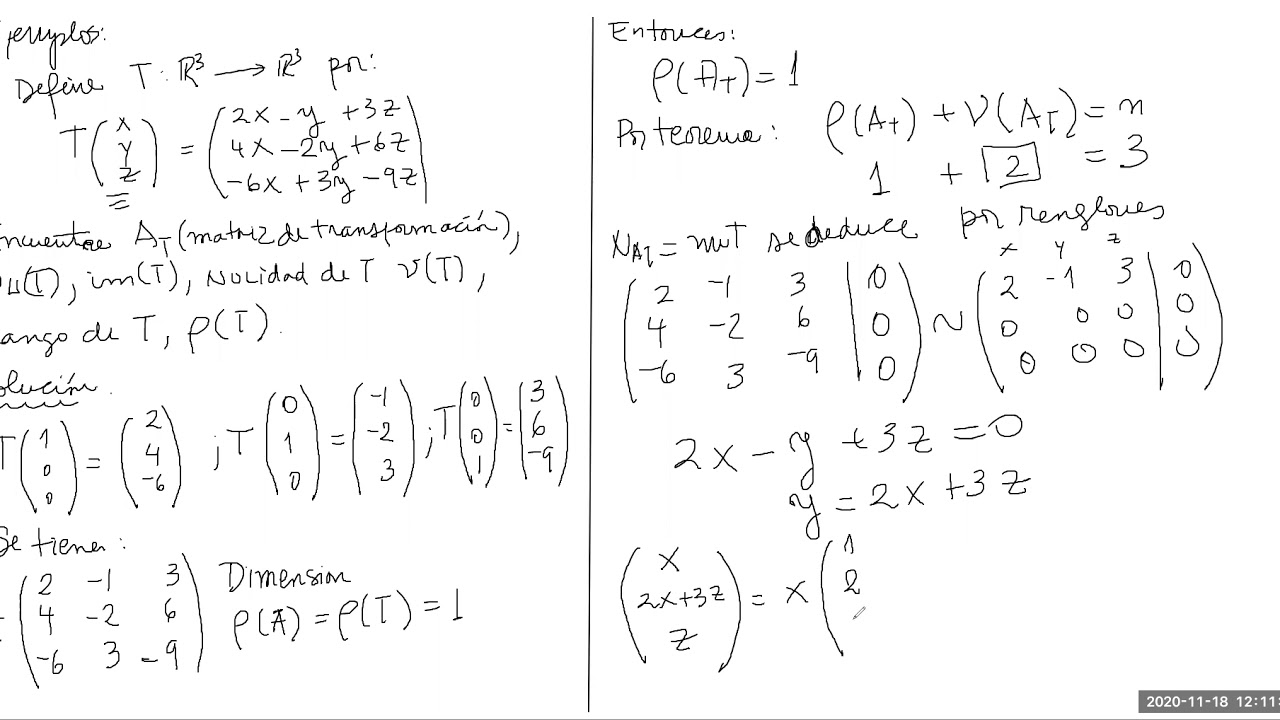 jemplos:
Define T: ℝ³ → ℝ³ por:
T(x y z) = (2x - y + 3z
4x - 2y + 6z
-6x + 3y - 9z)
ncuentre A_T (matriz de transformación),
Nu(T), im(T), Nulidad de T ν(T),
ango de T, ρ(T).
olución.
T(1 0 0) = (2 4 -6) ; T(0 1 0) = (-1 -2 3) ; T(0 0 1) = (3 6 -9)
Se tiene:
(2 -1 3
4 -2 6
-6 3 -9)
Dimension
ρ(A) = ρ(T) = 1
Entonces:
ρ(A_T) = 1
Por teorema: ρ(A_T) + ν(A_T) = n
1 + 2 = 3
N_{A_T} = mT se deduce por renglones
x y z
(2 -1 3 | 0) ~ (2 -1 3 | 0)
(4 -2 6 | 0) (0 0 0 | 0)
(-6 3 -9 | 0) (0 0 0 | 0)
2x - y + 3z = 0
y = 2x + 3z
(x
2x+3z
z) = x (1
2